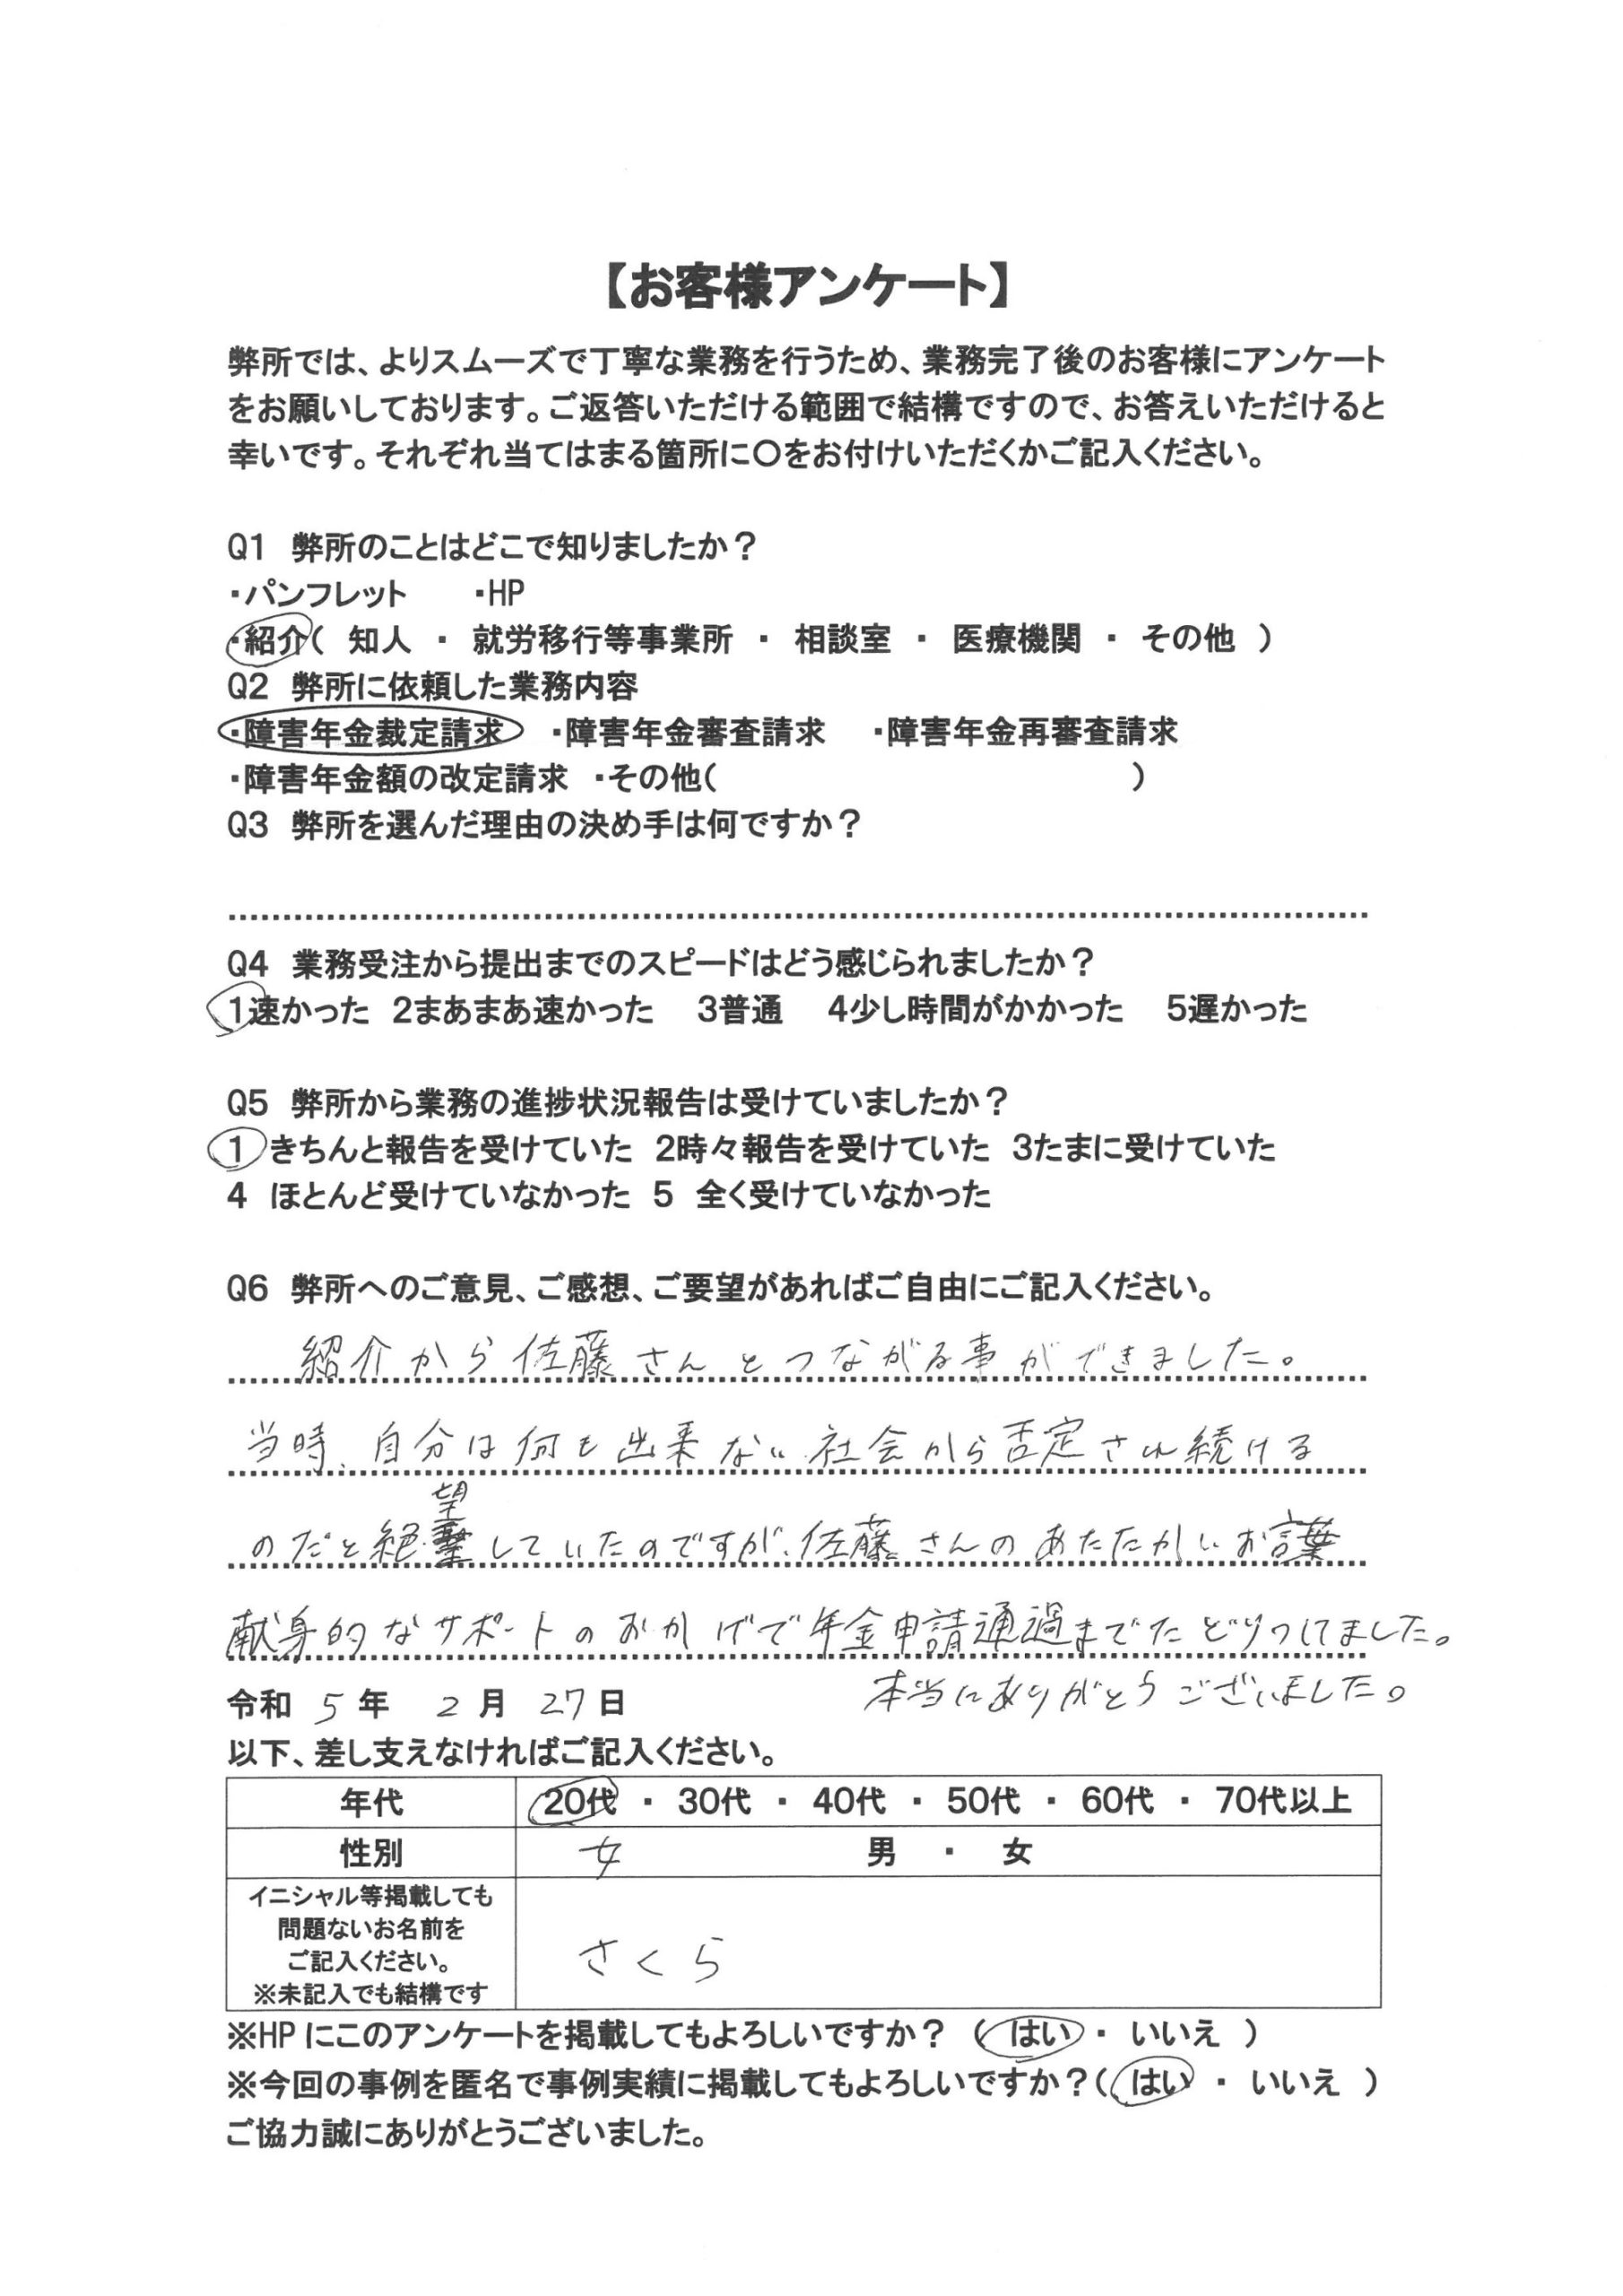 【お客様アンケート】
弊所では、よりスムーズで丁寧な業務を行うため、業務完了後のお客様にアンケート
をお願いしております。ご返答いただける範囲で結構ですので、お答えいただけると
幸いです。それぞれ当てはまる箇所に〇をお付けいただくかご記入ください。
Q1 弊所のことはどこで知りましたか？
・パンフレット ・HP
・紹介( 知人 ・ 就労移行等事業所 ・ 相談室 ・ 医療機関 ・ その他 )
Q2 弊所に依頼した業務内容
・障害年金裁定請求 ・障害年金審査請求 ・障害年金再審査請求
・障害年金額の改定請求 ・その他( )
Q3 弊所を選んだ理由の決め手は何ですか？
Q4 業務受注から提出までのスピードはどう感じられましたか？
1速かった 2まあまあ速かった 3普通 4少し時間がかかった 5遅かった
Q5 弊所から業務の進捗状況報告は受けていましたか？
1 きちんと報告を受けていた 2時々報告を受けていた 3たまに受けていた
4 ほとんど受けていなかった 5 全く受けていなかった
Q6 弊所へのご意見、ご感想、ご要望があればご自由にご記入ください。
紹介から佐藤さんとつながる事ができました。
当時、自分は何も出来ない社会から否定され続ける
のだと絶望していたのですが、佐藤さんのあたたかいお言葉
献身的なサポートのおかげで年金申請通過までたどりつけました。
本当にありがとうございました。
令和 5 年 2 月 27 日
以下、差し支えなければご記入ください。
年代 20代 ・ 30代 ・ 40代 ・ 50代 ・ 60代 ・ 70代以上
性別 女 男 ・ 女
イニシャル等掲載しても
問題ないお名前を
ご記入ください。
※未記入でも結構です
さくら
※HPにこのアンケートを掲載してもよろしいですか？ ( はい ・ いいえ )
※今回の事例を匿名で事例実績に掲載してもよろしいですか？( はい ・ いいえ )
ご協力誠にありがとうございました。